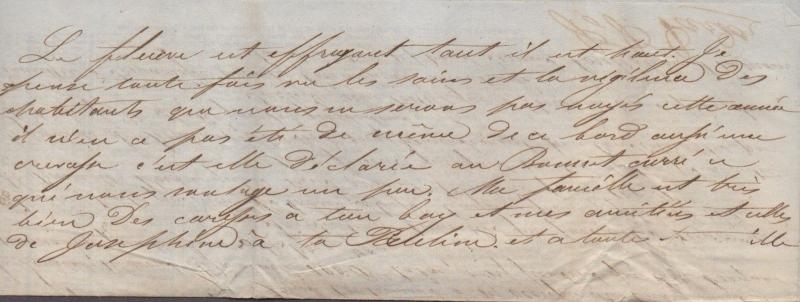 Le fleuve est effrayant tant il est haut. Je
pense toute fois vu les soins et la vigilence des
habitants que nous ne serons pas noyés cette année
il n'en a pas été de même de ce bord aussi une
crevasse c'est elle déclarée au Bonnet carré
qui nous soulage un peu. Ma famille est très
bien Des caresses à ton boy et mes amitiés et celles
de Josephine à ta et a toute ille